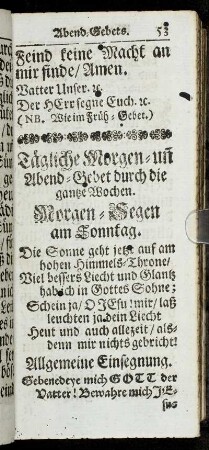 Abend-Gebets. 53
Feind keine Macht an
mir finde/ Amen.
Vatter Unser. ꝛc.
Der HErr segne Euch. ꝛc.
(NB. Wie im Früh-Gebet.)
Tägliche Morgen-uñ
Abend-Gebet durch die
gantze Wochen.
Morgen-Segen
am Sonntag.
Die Sonne geht jetzt auf am
hohen Himmels-Throne/
Viel bessers Liecht und Glantz
hab ich in Gottes Sohne;
Schein ja/ O JEsu! mir/ laß
leuchten ja dein Liecht
Heut und auch allezeit/ als-
denn mir nichts gebricht!
Allgemeine Einsegnung.
Gebenedeye mich GOTT der
Vatter! Bewahre mich JE-
sus